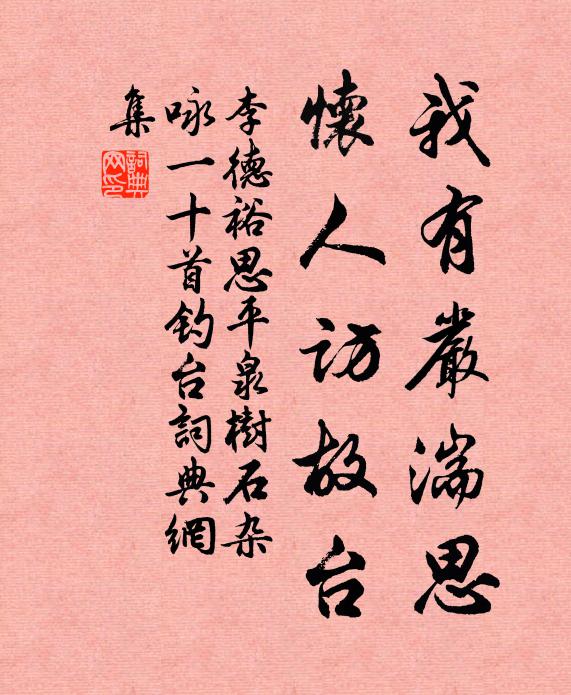 我有嚴湍思
懷人訪故台
李德裕思平泉樹石杂
咏一十首钓台詞典網
集
詞典
网印